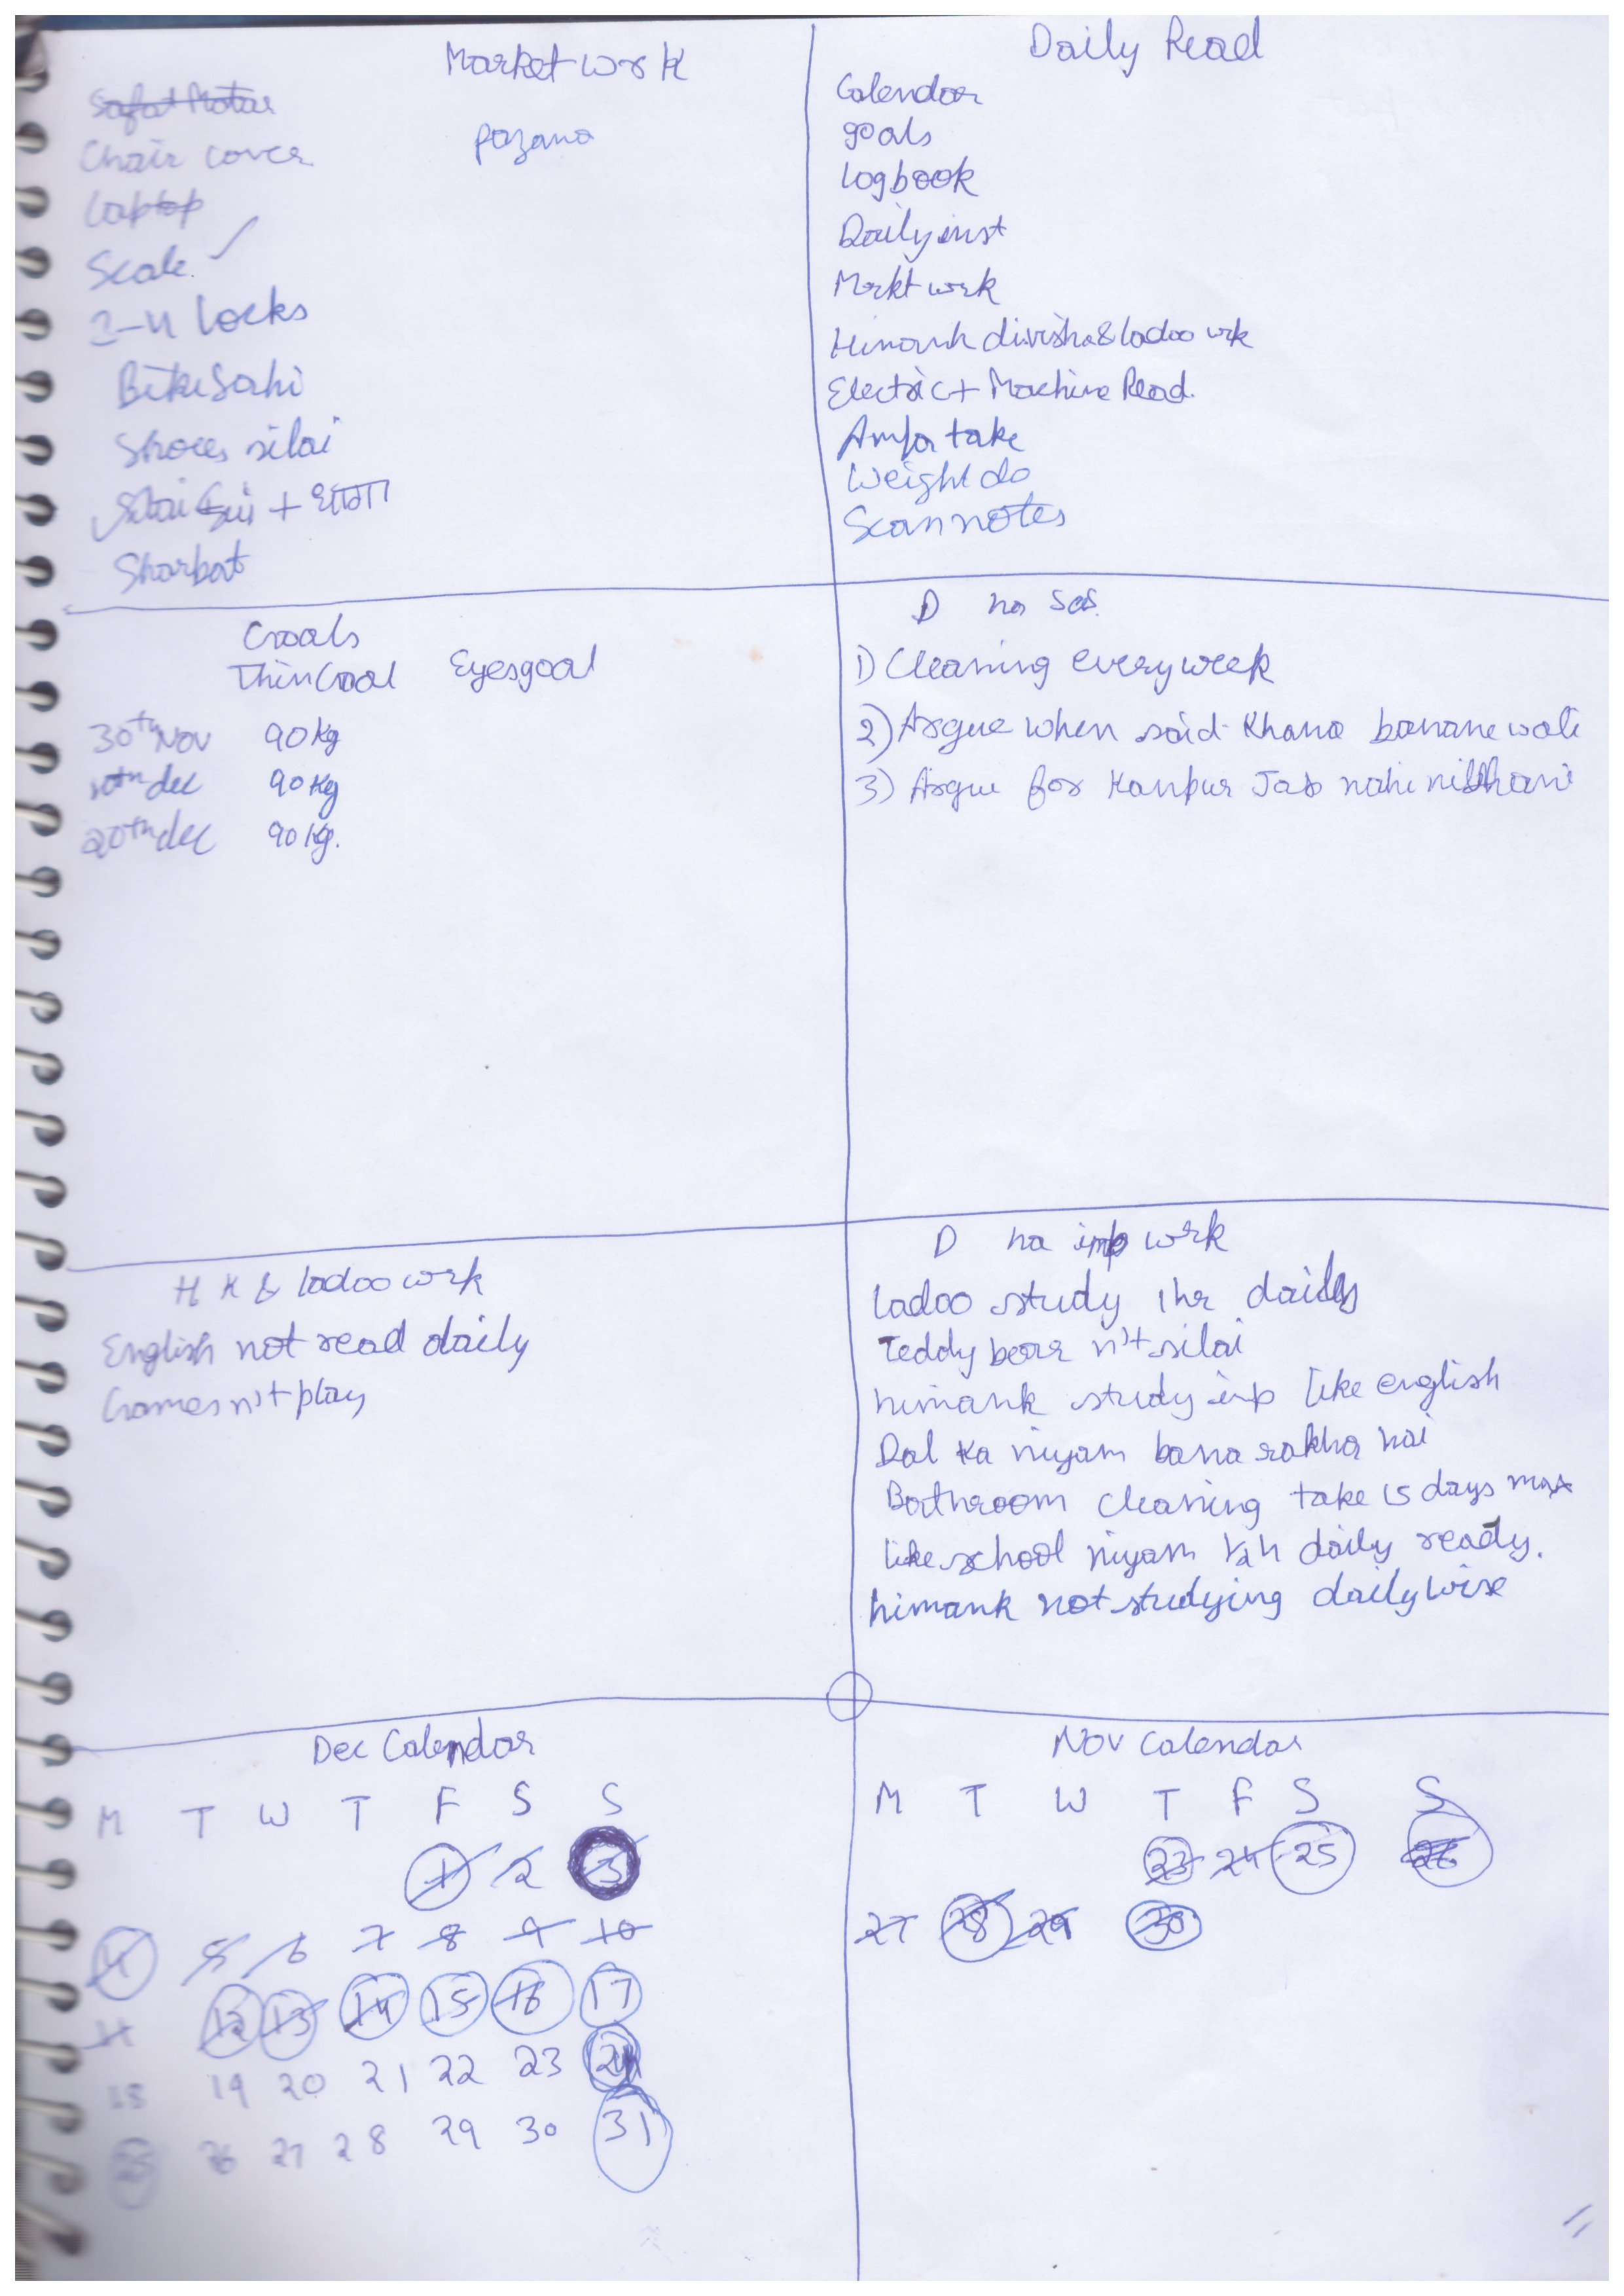 Market wrk
Safat Motar
Chair cover
pazana
Laptop
Scale.
2-4 locks
Bike sahi
Shoes silai
Silai Sui + धागा
Sharbat
Daily Read
Calendar
goals
Logbook
Daily inst
Markt work
Himank divisha & ladoo wrk
Electric + Machine Read.
Amfa take
Weight do
Scan notes
Goals
Thin Goal Eyes goal
30th Nov 90 Kg
10th dec 90 Kg
20th dec 90 Kg.
D ka sas.
1) Cleaning every week
2) Argue when said Khana banane wali
3) Argue for Kanpur Jab nahi
H K & ladoo wrk
English not read daily
Games n't play
D ka imp wrk
Ladoo study 1 hr daily
Teddy bear n't silai
himank study imp like english
Dal ka niyam bana rakha hai
Bathroom cleaning take 15 days max
like school niyam 1/2 h daily ready.
himank not studying daily wise
Dec Calendar
M T W T F S S
1 2 3
4 5 6 7 8 9 10
11 12 13 14 15 16 17
18 19 20 21 22 23 24
25 26 27 28 29 30 31
Nov Calendar
M T W T F S S
23 24 25 26
27 28 29 30